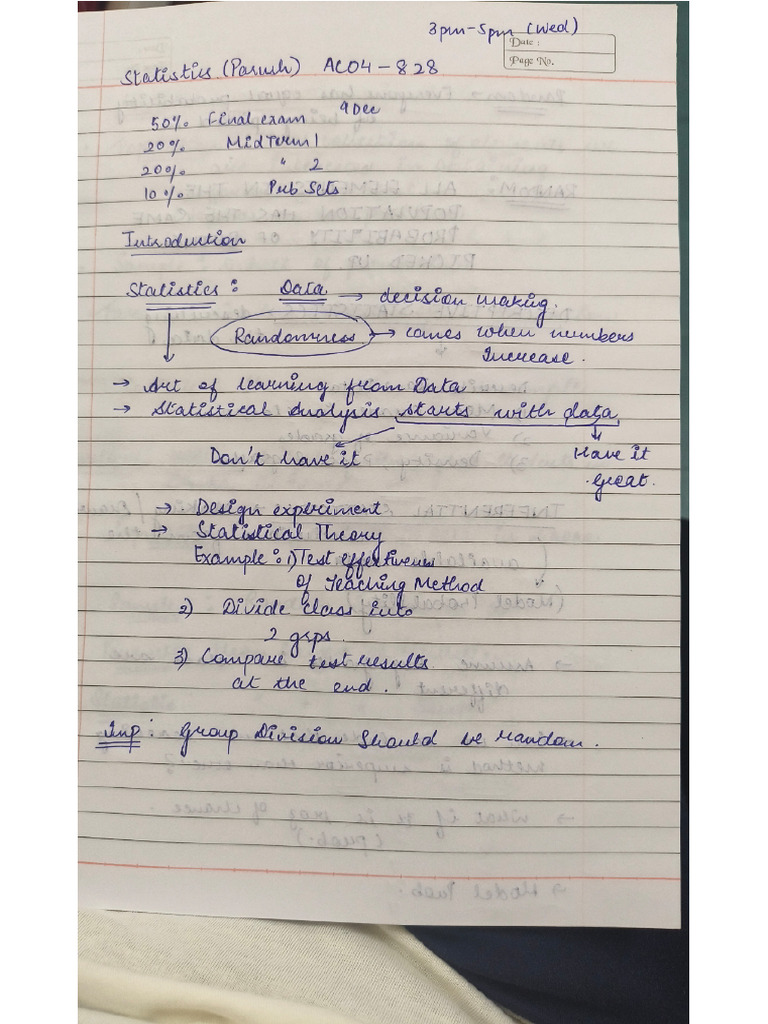 3pm-5pm (Wed)
Date :
Page No.
Statistics (Parush) AC04-828
50% Final exam 9 Dec
20% Midterm 1
20% " 2
10% Prob Sets
Introduction
Statistics : Data → decision making.
Randomness → comes when numbers
Increase.
→ Art of learning from Data
→ Statistical Analysis starts with data
Don't have it
Have it
great.
→ Design experiment
→ Statistical Theory
Example : 1) Test effectiveness
Of Teaching Method
2) Divide class into
2 grps.
3) Compare test results
at the end.
Imp : Group Division Should be random.